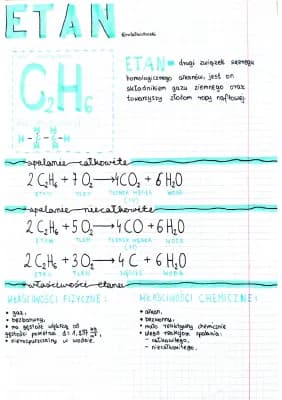 ETAN
C₂H₆
H H
H-C-C-H
H H
ETAN - drugi związek szeregu
homologicznego alkanów, jest on
składnikiem gazu ziemnego oraz
towarzyszy złożom ropy naftowej.
spalanie całkowite
2 C₂H₆ + 7 O₂ → 4 CO₂ + 6 H₂O
ETAN TLEN TLENEK WĘGLA WODA
(IV)
spalanie niecałkowite
2 C₂H₆ + 5 O₂ → 4 CO + 6 H₂O
ETAN TLEN TLENEK WĘGLA WODA
(II)
2 C₂H₆ + 3 O₂ → 4 C + 6 H₂O
ETAN TLEN WĘGIEL WODA
właściwości etanu
WŁAŚCIWOŚCI FIZYCZNE:
• gaz,
• bezbarwny,
• nierozpuszczalny w wodzie.
WŁAŚCIWOŚCI CHEMICZNE:
• alkan,
• bezwonny,
• mało reaktywny chemicznie
• ulega reakcjom spalania:
- całkowitego,
- niecałkowitego.